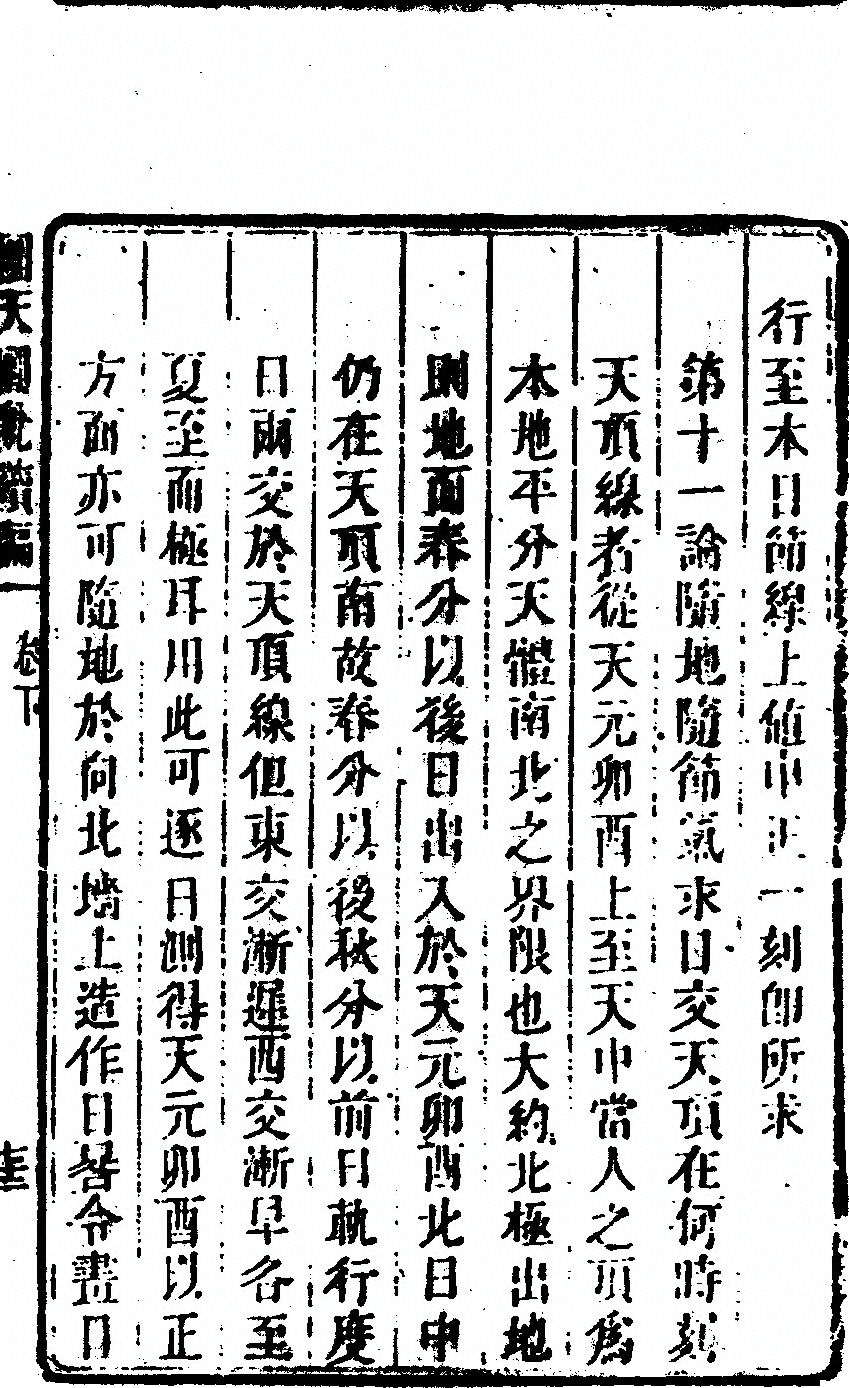 行至本日節線上値申正一刻卽所求
第十一論隨地隨節氣求日交天頂在何時刻
天頂線者從天元卯酉上至天中當人之頂爲
本地平分天體南北之界限也大約北極出地
則地面春分以後日出入於天元卯酉北日中
仍在天頂南故春分以後秋分以前日軌行度
日兩交於天頂線但東交漸遲西交漸早各至
夏至而極耳用此可逐日測得天元卯酉以正
方面亦可隨地於向北墻上造作日晷令盡日
渾天圖說續編
卷下